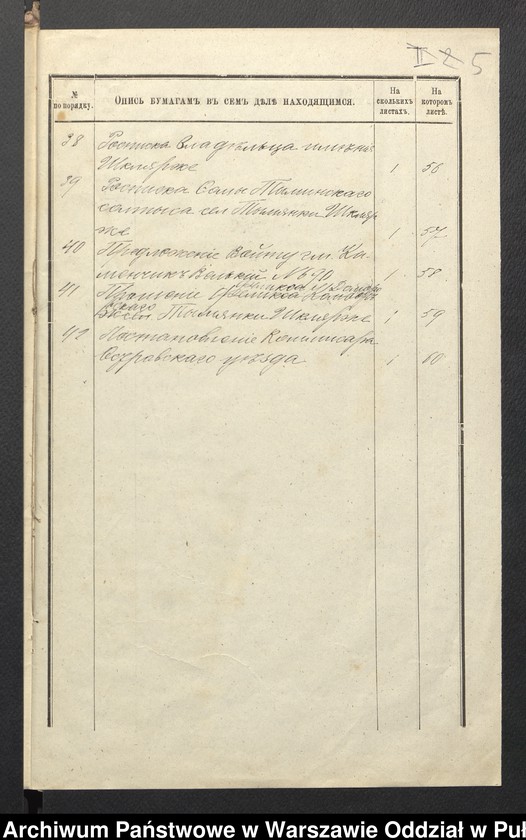 II 2 5
№ по порядку.
Опись бумагамъ въ семъ дѣлѣ находящимся.
На сколькихъ листахъ.
На которомъ листѣ.
38 Росписка владѣльца имѣнія
Шклярже 1 56
39 Росписка
солтыса сел Тымянки Шкляр
же 1 57
40 Предложеніе Войту гм. Ка-
менчикъ Велькій № 690 1 58
41 Прошеніе
Тымянки Шклярже 1 59
42 Постановленіе Коммисара
Островскаго уѣзда 1 60
Archiwum Państwowe w Warszawie Oddział w Puł